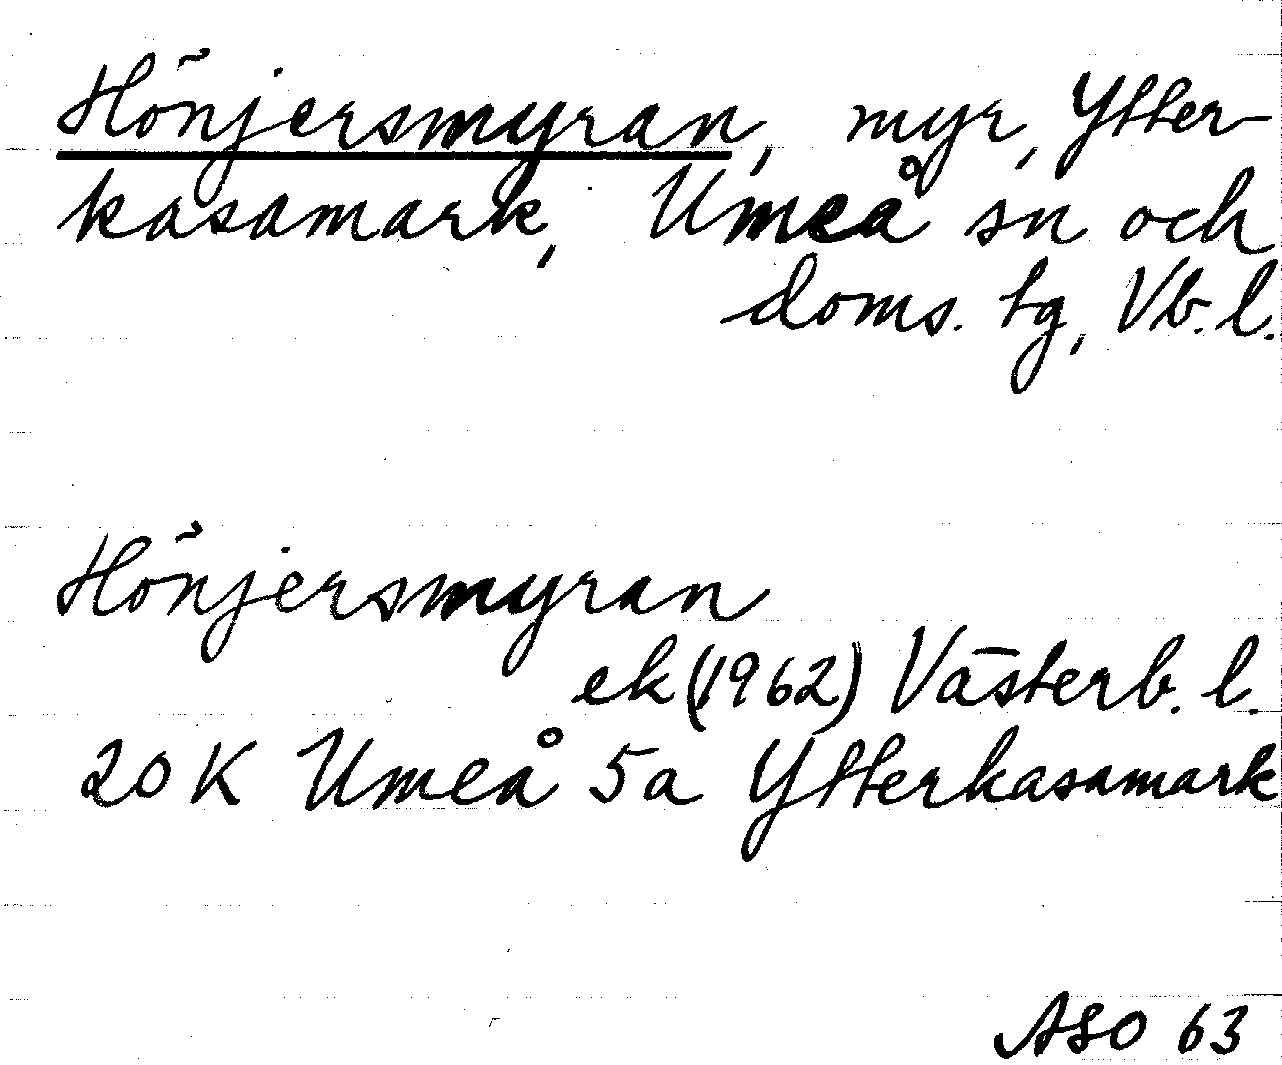 Hönjersmyran, myr, Ytter-
kasamark, Umeå sn och
doms. tg, Vb. l.
Hönjersmyran
ek (1962) Västerb. l.
20 K Umeå 5a Ytterkasamark
ASO 63